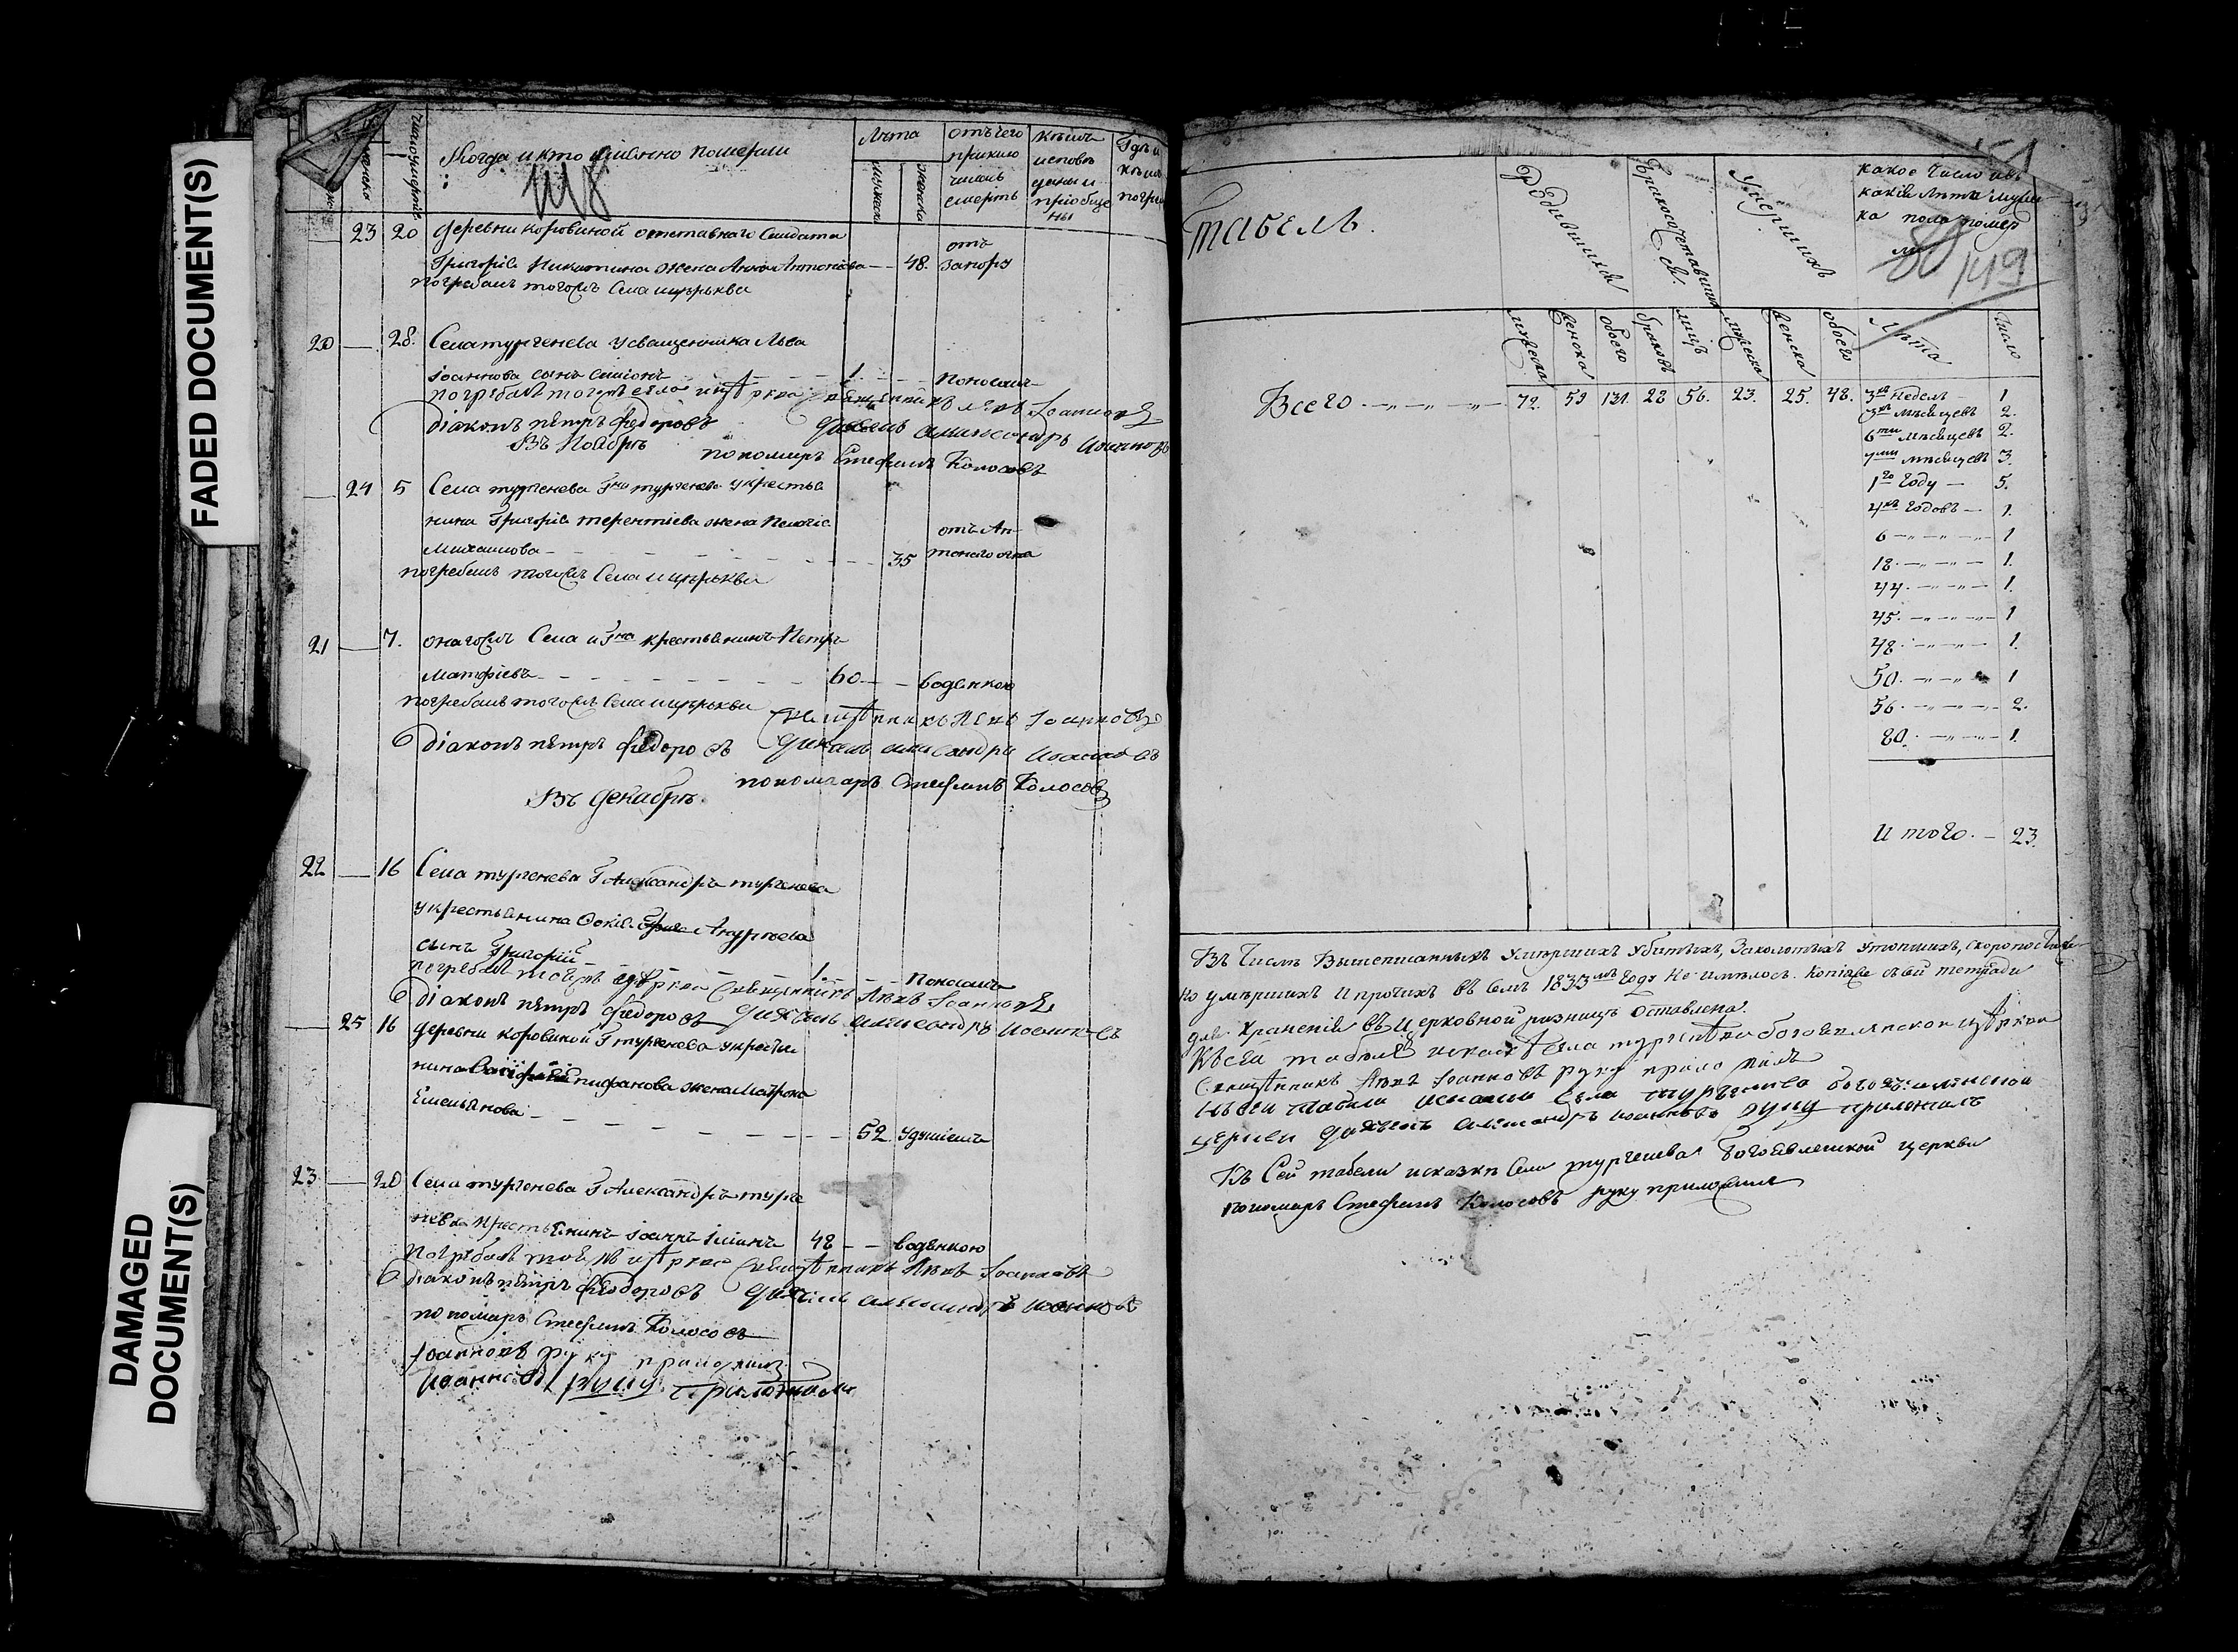 FADED DOCUMENT(S)
DAMAGED DOCUMENT(S)
женска
число умертвія
Когда и кто имянно померли
Лѣта
мужска
женска
отъ чего приключилась смерть
кѣмъ исповѣданы и приобщены
Гдѣ и кѣмъ погре
23 20 деревни Коровиной отставнаго Салдата
Григорія Никитина жена Анна Антонова — 48. отъ запору
погребалъ тогожъ Села ицрькви
20 — 28. Села тургенева у священника Льва
Іоаннова сынъ Симіонъ 1. поносомъ
погребалъ тогожъ села священникъ Левъ Іоанновъ
діаконъ пѣтръ федоровъ дьячекъ александръ Иоанновъ
Въ Ноябрѣ
пономарь Стефанъ Колосовъ
24 5 Села тургенева Гна тургенева у крестья
нина Григорія терентіева жена Пелагіе
Михаилова 35 отъ Антонова огня
погребалъ тогожъ Села ицрькви
21 — 7. онагожъ Села и Гна крестьянинъ Петръ
Матфіевъ 60 — водянкою
погребалъ тогожъ Села ицрькви
священникъ Левъ Іоанновъ
діаконъ пѣтръ федоровъ дьячекъ александръ Иоанновъ
пономарь Стефанъ Колосовъ
Въ Декабрѣ.
22 — 16 Села тургенева Г Александръ тургенева
у крестьянина
сынъ Григорій
1. — поносомъ
священникъ Левъ Іоанновъ
діаконъ пѣтръ федоровъ дьячекъ александръ Иоанновъ
25 16 деревни Коровиной Г тургенева у крестья
нина жена Матрона
Емельянова 52 удушіемъ
23 — 20 Села тургенева Г Александръ турге
нева крестьянинъ 48 — водянкою
священникъ Левъ Іоанновъ
діаконъ пѣтръ федоровъ дьячекъ александръ Иоанновъ
пономарь Стефанъ Колосовъ
Іоанновъ руку приложилъ
Иоанновъ руку приложили
табель.
Родившихся
Бракосочетавшихся.
Умершихъ
какое число и въ какія лѣта мужеска пола помер
149
мужеска
женска
обоего
браковъ
лицъ
мужеска
женска
обоего
Лѣта
Число
Всего — 72. 59 131. 28 56. 23. 25. 48.
3хъ недель — 1
3хъ мѣсяцевъ 2.
6ти мѣсяцевъ 2.
7ми мѣсяцевъ 3.
1го году — 5.
4хъ годовъ — 1.
6 — 1
18. — 1.
44. — 1.
45. — 1
48. — 1.
50. — 1
56. — 2.
80. — 1.
Итого. — 23.
Въ числѣ вышеписанныхъ умершихъ убитыхъ, заколотыхъ утопшихъ, скоропостижно
умершихъ и прочихъ въ семъ 1833мъ годѣ не имѣлось. Копія же съ сей тетради
для храненія въ церковной ризницѣ оставлена.
Къ сей табели и села тургенева богоявленской
священникъ Левъ Іоанновъ руку приложилъ
Къ сей табели села тургенева богоявленской
церкви дьячекъ александръ Иоанновъ руку приложилъ
Къ Сей табели и сказки Села тургенева богоявленской церкви
пономарь Стефанъ Колосовъ руку приложилъ